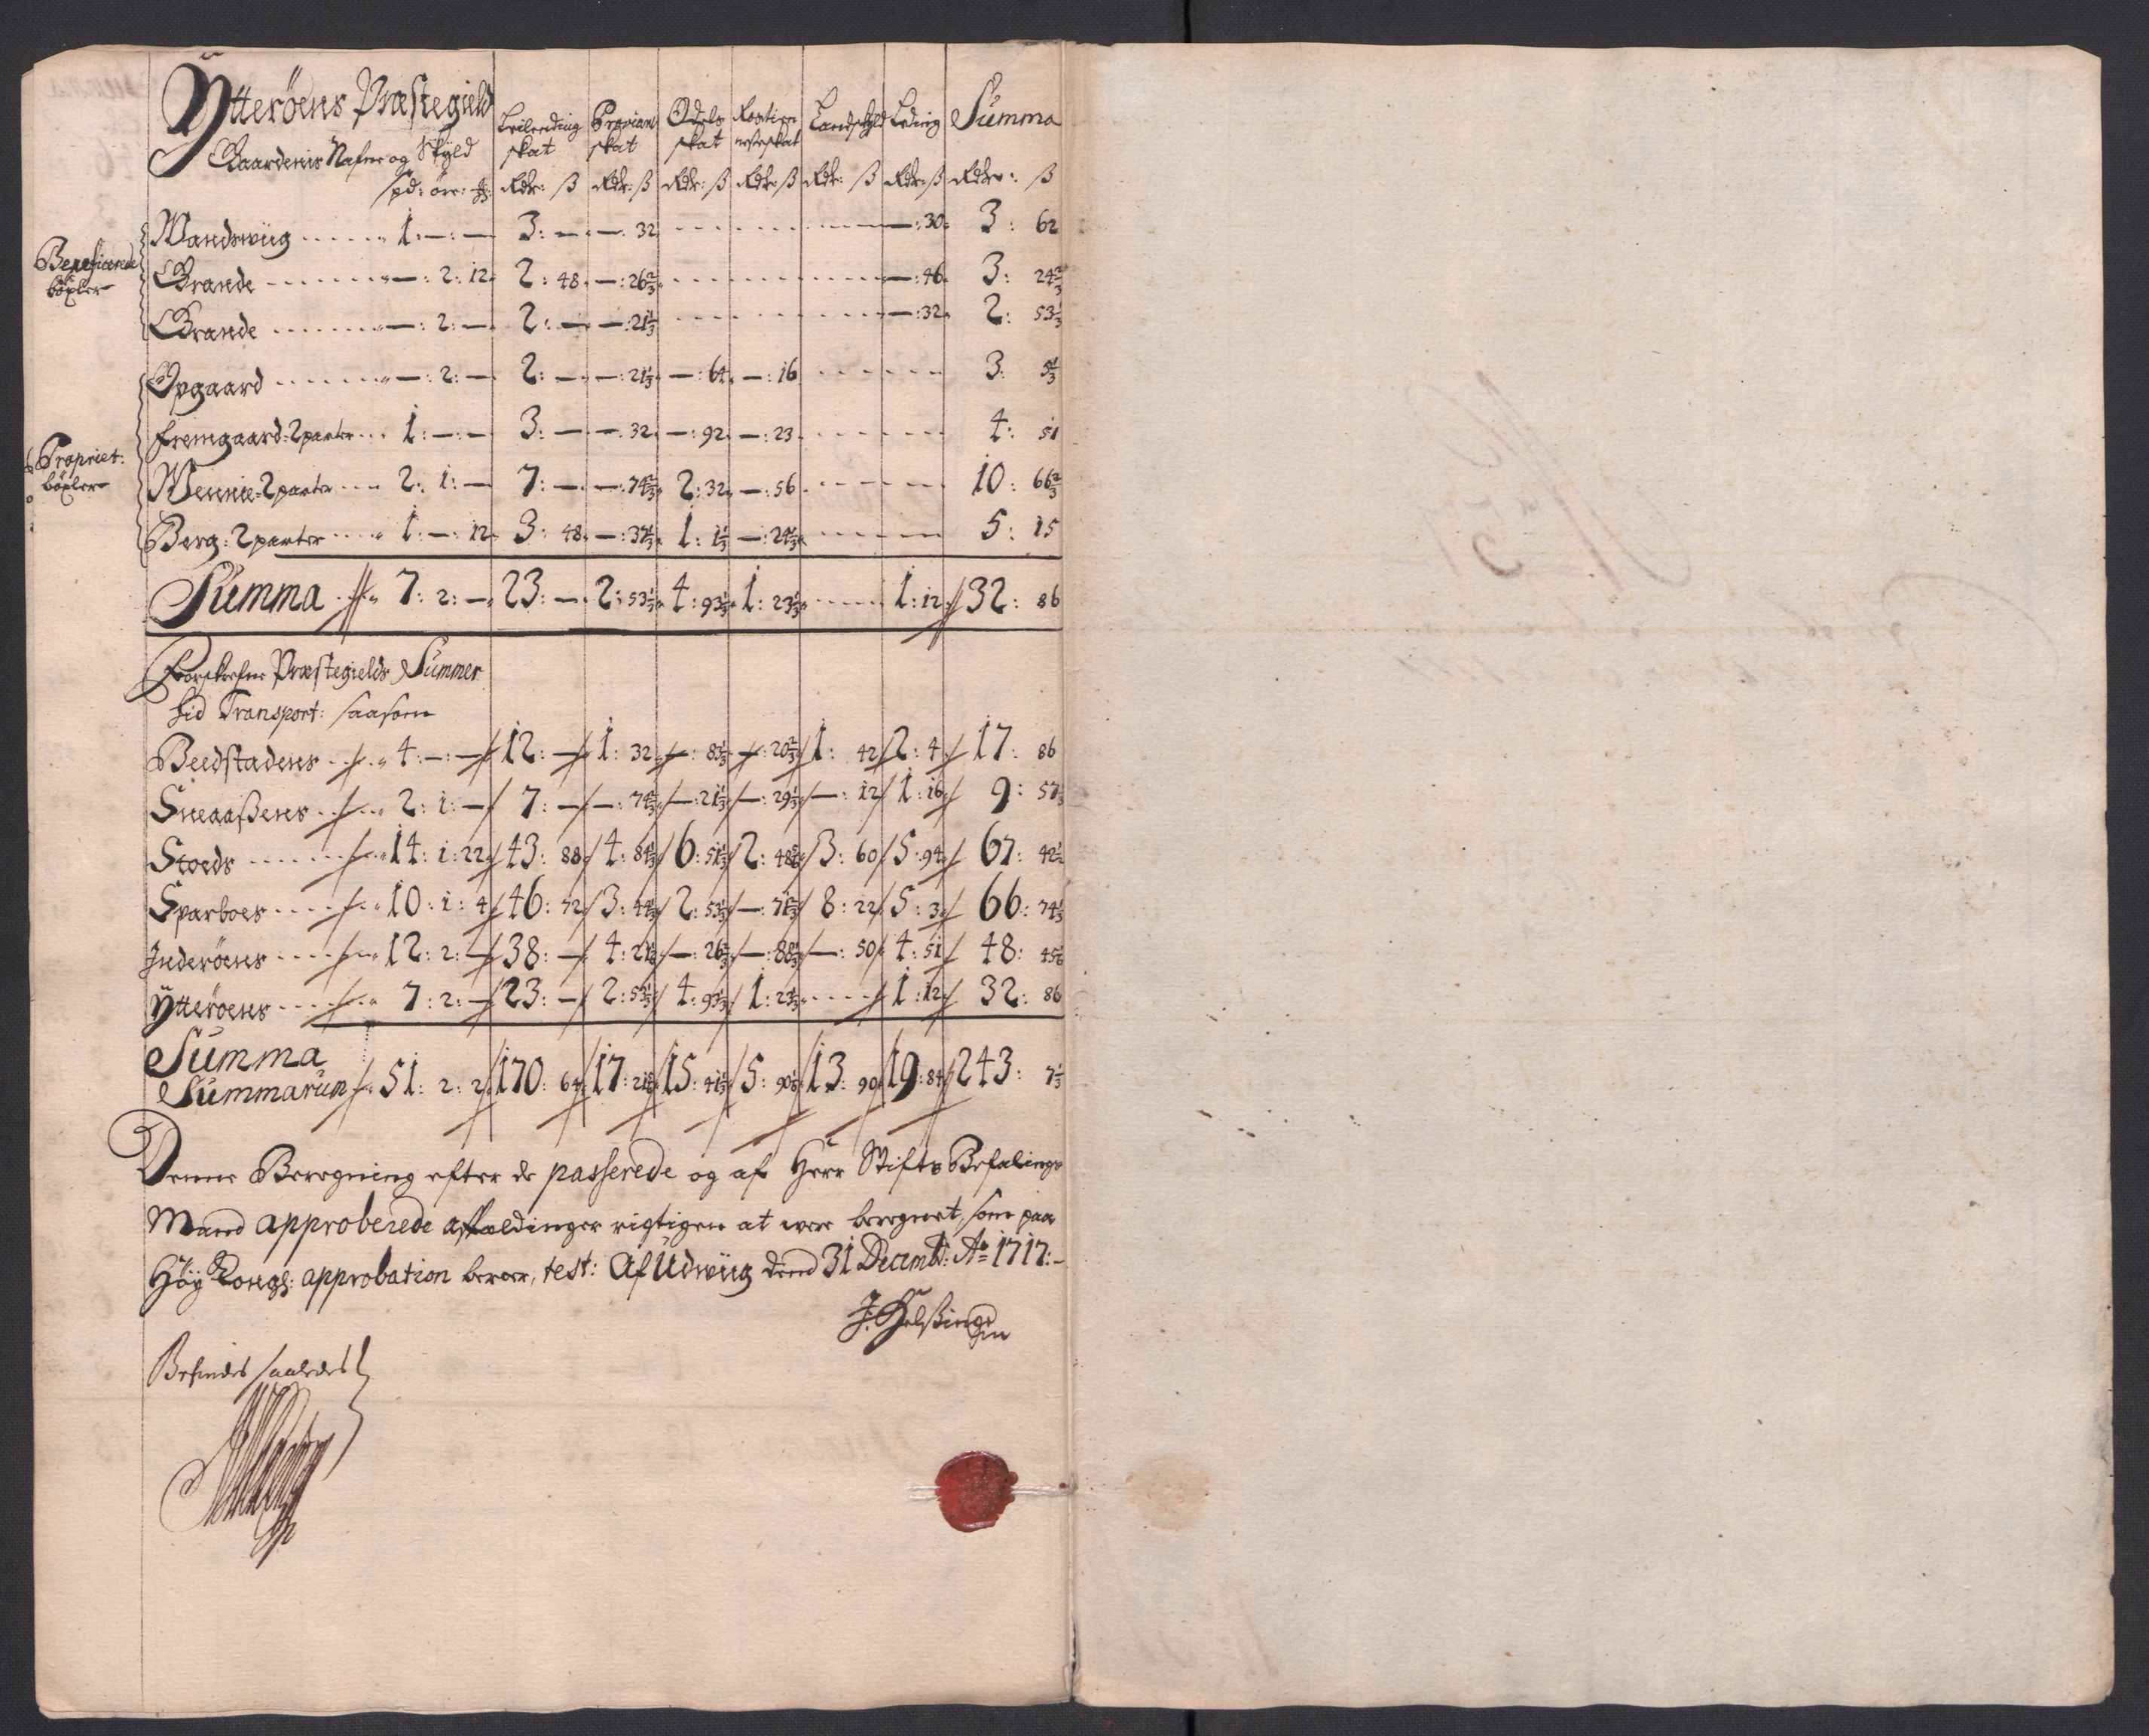 Ytterøens Præstegield
Gaardenis Nafne og Skyld
spd: øre:
Leilending skat Rdr: ß
Provian skat Rdr: ß
Odels skat Rdr: ß
Rostien skat Rdr: ß
Landskyld Rdr: ß
Leding Rdr: ß
Summa Rdr: ß
Beneficerede
böxler
Wandswiig 1: —: — 3: — —: 32 —: 30 3: 62
Grande —: 2: 12 2: 48 —: 26 2/3 —: 46 3: 24 2/3
Grande —: 2: — 2: — —: 21 1/3 —: 32 2: 53 1/3
Propriet:
böxler
Opgaard —: 2: — 2: — —: 21 1/3 —: 64 —: 16 3: 5 1/3
Fremgaard: 2 parter 1: —: — 3: — —: 32 —: 92 —: 23 4: 51
Wennie: 2 parter 2: 1: — 7: — —: 74 2/3 2: 32 —: 56 10: 66 2/3
Berg: 2 parter 1: —: 12 3: 48 —: 37 1/3 1: 1 1/3 —: 24 1/3 5: 15
Summa 7: 2: — 23: — 2: 53 1/3 4: 93 1/3 1: 23 1/3 1: 12 32: 86
Forskrefne Præstegields Summer
hid Transport: saasom
Beedstadens 4: —: — 12: — 1: 32 —: 83 1/3 —: 20 2/3 1: 42 2: 4 17: 86
Sneaaßens 2: 1: — 7: — —: 74 2/3 —: 21 1/3 —: 29 1/3 —: 12 1: 16 9: 57 1/3
Stoeds 14: 1: 22 43: 88 4: 84 1/3 6: 51 1/3 2: 48 5/6 3: 60 5: 94 67: 42 1/2
Sparboes 10: 1: 4 46: 72 3: 44 1/3 2: 53 1/3 —: 71 2/3 8: 22 5: 3 66: 74 1/3
Inderøens 12: 2: — 38: — 4: 21 1/3 —: 26 2/3 —: 88 1/3 —: 50 4: 51 48: 45 1/6
Ytterøens 7: 2: — 23: — 2: 53 1/3 4: 93 1/3 1: 23 1/3 1: 12 32: 86
Summa
Summarum 51: 2: 2 170: 64 17: 21 5/6 15: 41 1/3 5: 90 1/6 13: 90 19: 84 243: 7 1/3
Denne Beregning efter de passerede og af Herr Stifts Befalings
Mand approberede affældinger rigtigen at were beregnet, som paa
Høy Kongl: approbation beroer, test: Af Udwiig dend 31 Decembr: Ao 1717:
J: Helßing
Befindes saaledes